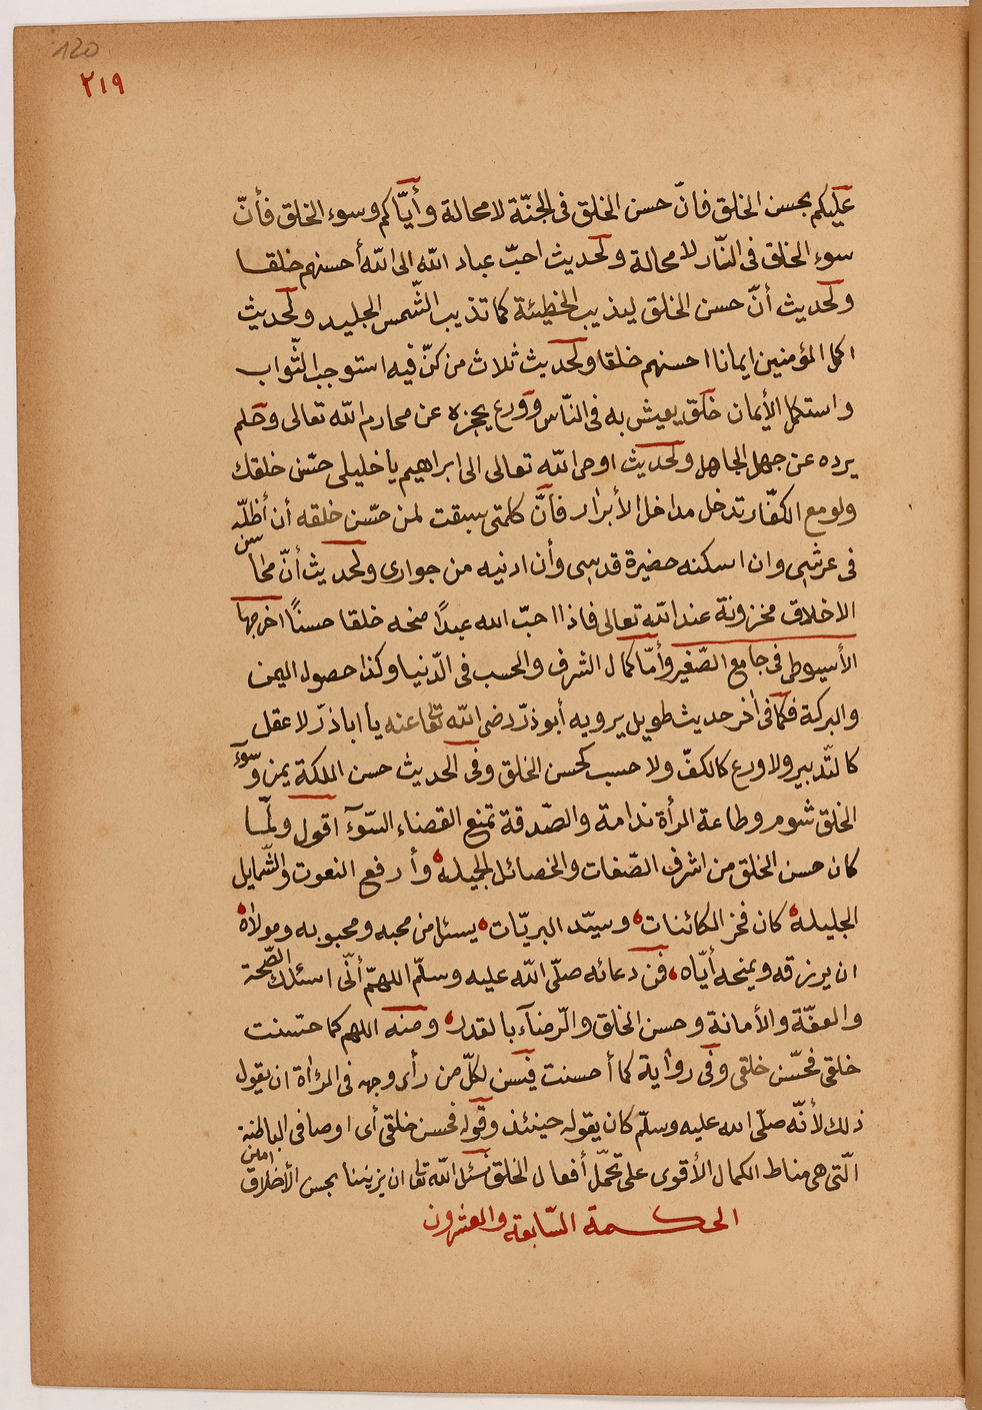 120
٢١٩
عليكم بحسن الخلق فانّ حسن الخلق فى الجنّة لا محالة وأيّاكم وسوء الخلق فأنّ
سوء الخلق فى النّار لا محالة ولحديث احبّ عباد الله الى الله أحسنهم خلقا
ولحديث أنّ حسن الخلق ليذيب الخطيئة كما تذيب الشّمس الجليد ولحديث
اكمل المؤمنين ايمانا احسنهم خلقا ولحديث ثلاث من كنّ فيه استوجب الثّواب
واستكمل الأيمان خلق يعيش به فى النّاس وورع يحجزه عن محارم الله تعالى وحلم
يرده عن جهل الجاهل ولحديث اوحى الله تعالى الى ابراهيم يا خليلى حسّن خلقك
ولو مع الكفّار تدخل مداخل الأبرار فأنّ كلمتى سبقت لمن حسّن خلقه أن أظلّه
فى عرشى وان اسكنه حضيرة قدسى وأن ادنيه من جوارى ولحديث أنّ محاسن
الاخلاق مخزونة عند الله تعالى فاذا احبّ الله عبدًا منحه خلقا حسنًا اخرجها
الأسيوطى فى جامع الصّغير وأمّا كمال الشرف والحسب فى الدّنيا وكذا حصول اليمن
والبركة فكما فى أخر حديث طويل يرويه أبو ذرّ رضى الله تعا عنه يا اباذرّ لا عقل
كالتّدبير ولا ورع كالكفّ ولا حسب كحسن الخلق وفى الحديث حسن الملكة يمن وسوء
الخلق شوم وطاعة المرأة ندامة والصّدقة تمنع القضاء السّوء اقول ولمّا
كان حسن الخلق من اشرف الصّفات والخصائل الجميلة وأرفع النعوت والشّمايل
الجليلة كان فخر الكائنات وسيّد البريّات يسئل من محبه ومحبوبه ومولاه
ان يرزقه ويمنحه أيّاه فمن دعائه صلّى الله عليه وسلّم اللهمّ أنّى اسئلك الصّحة
والعفّة والأمانة وحسن الخلق والرّضاء بالقدر ومنه اللهم كما حسّنت
خلقى فحسّن خلقى وفى رواية كما أحسنت فيسن لكلّ من رأى وجهه فى المرأة ان يقول
ذلك لأنّه صلّى الله عليه وسلّم كان يقوله حينئذ وقوله فحسن خلقى أى اوصافى الباطنة
الّتى هى مناط الكمال الأقوى على تحمّل أفعال الخلق نسئل الله تعا ان يزيننا بحسن الأخلاق امين
الحكمة السّابعة والعشرون